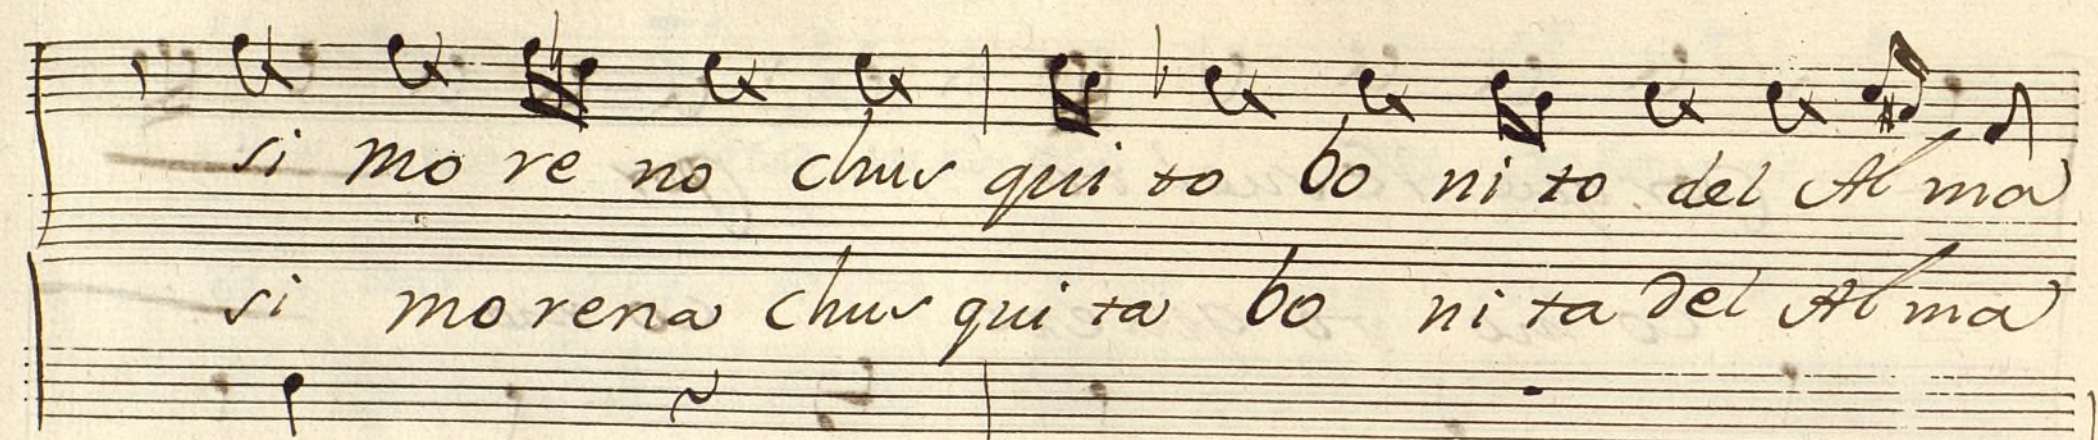 si mo re no chus qui to bo ni to del Al ma
si morena chus qui ta bo ni ta del Al ma